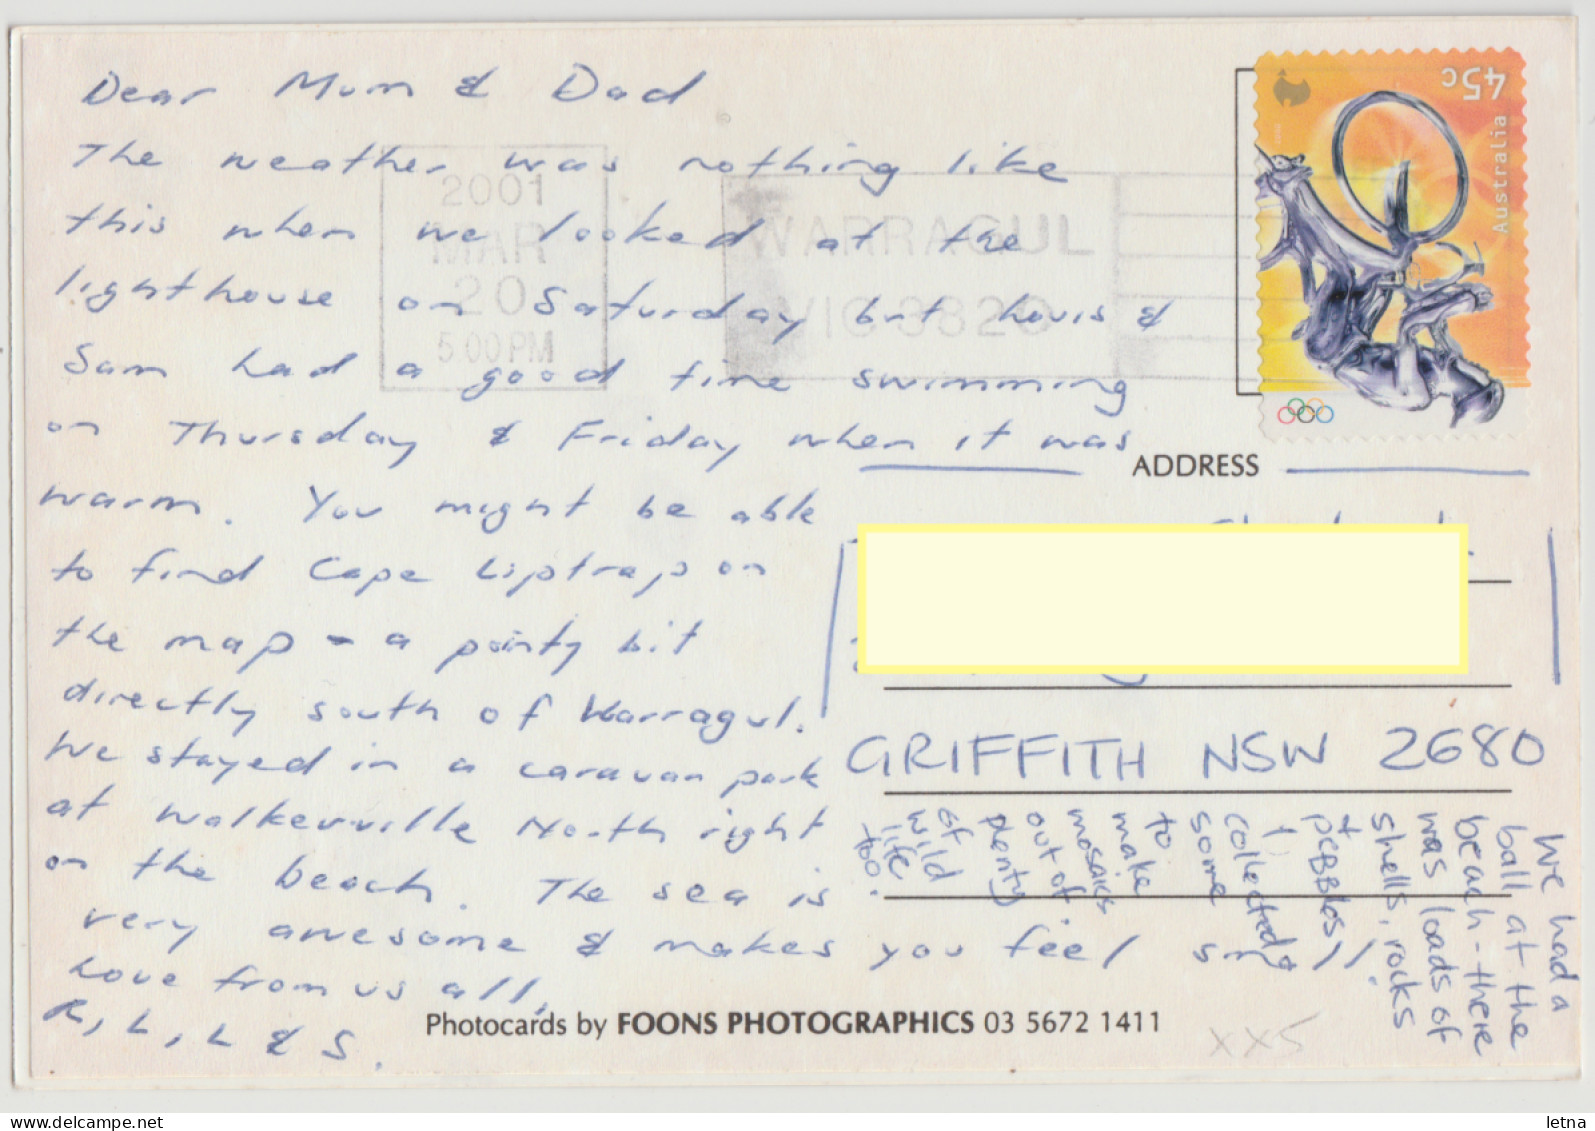 Dear Mum & Dad
The weather was nothing like
this when we looked at the
lighthouse on Saturday but Louis &
Sam had a good time swimming
on Thursday & Friday when it was
warm. You might be able
to find Cape Liptrap on
the map - a pointy bit
directly south of Warragul.
We stayed in a caravan park
at Walkerville North right
on the beach. The sea is
very awesome & makes you feel small.
Love from us all,
R, L, L & S.
2001
MAR
20
5.00PM
WARRAGUL
VIC 3820
45c
Australia
ADDRESS
GRIFFITH NSW 2680
We had a
ball at the
beach - there
was loads of
shells, rocks
& pebbles,
I
collected
some
to
make
mosaics
out of.
plenty
of
wild
life
too.
Photocards by FOONS PHOTOGRAPHICS 03 5672 1411
xx5
www.delcampe.net
letna